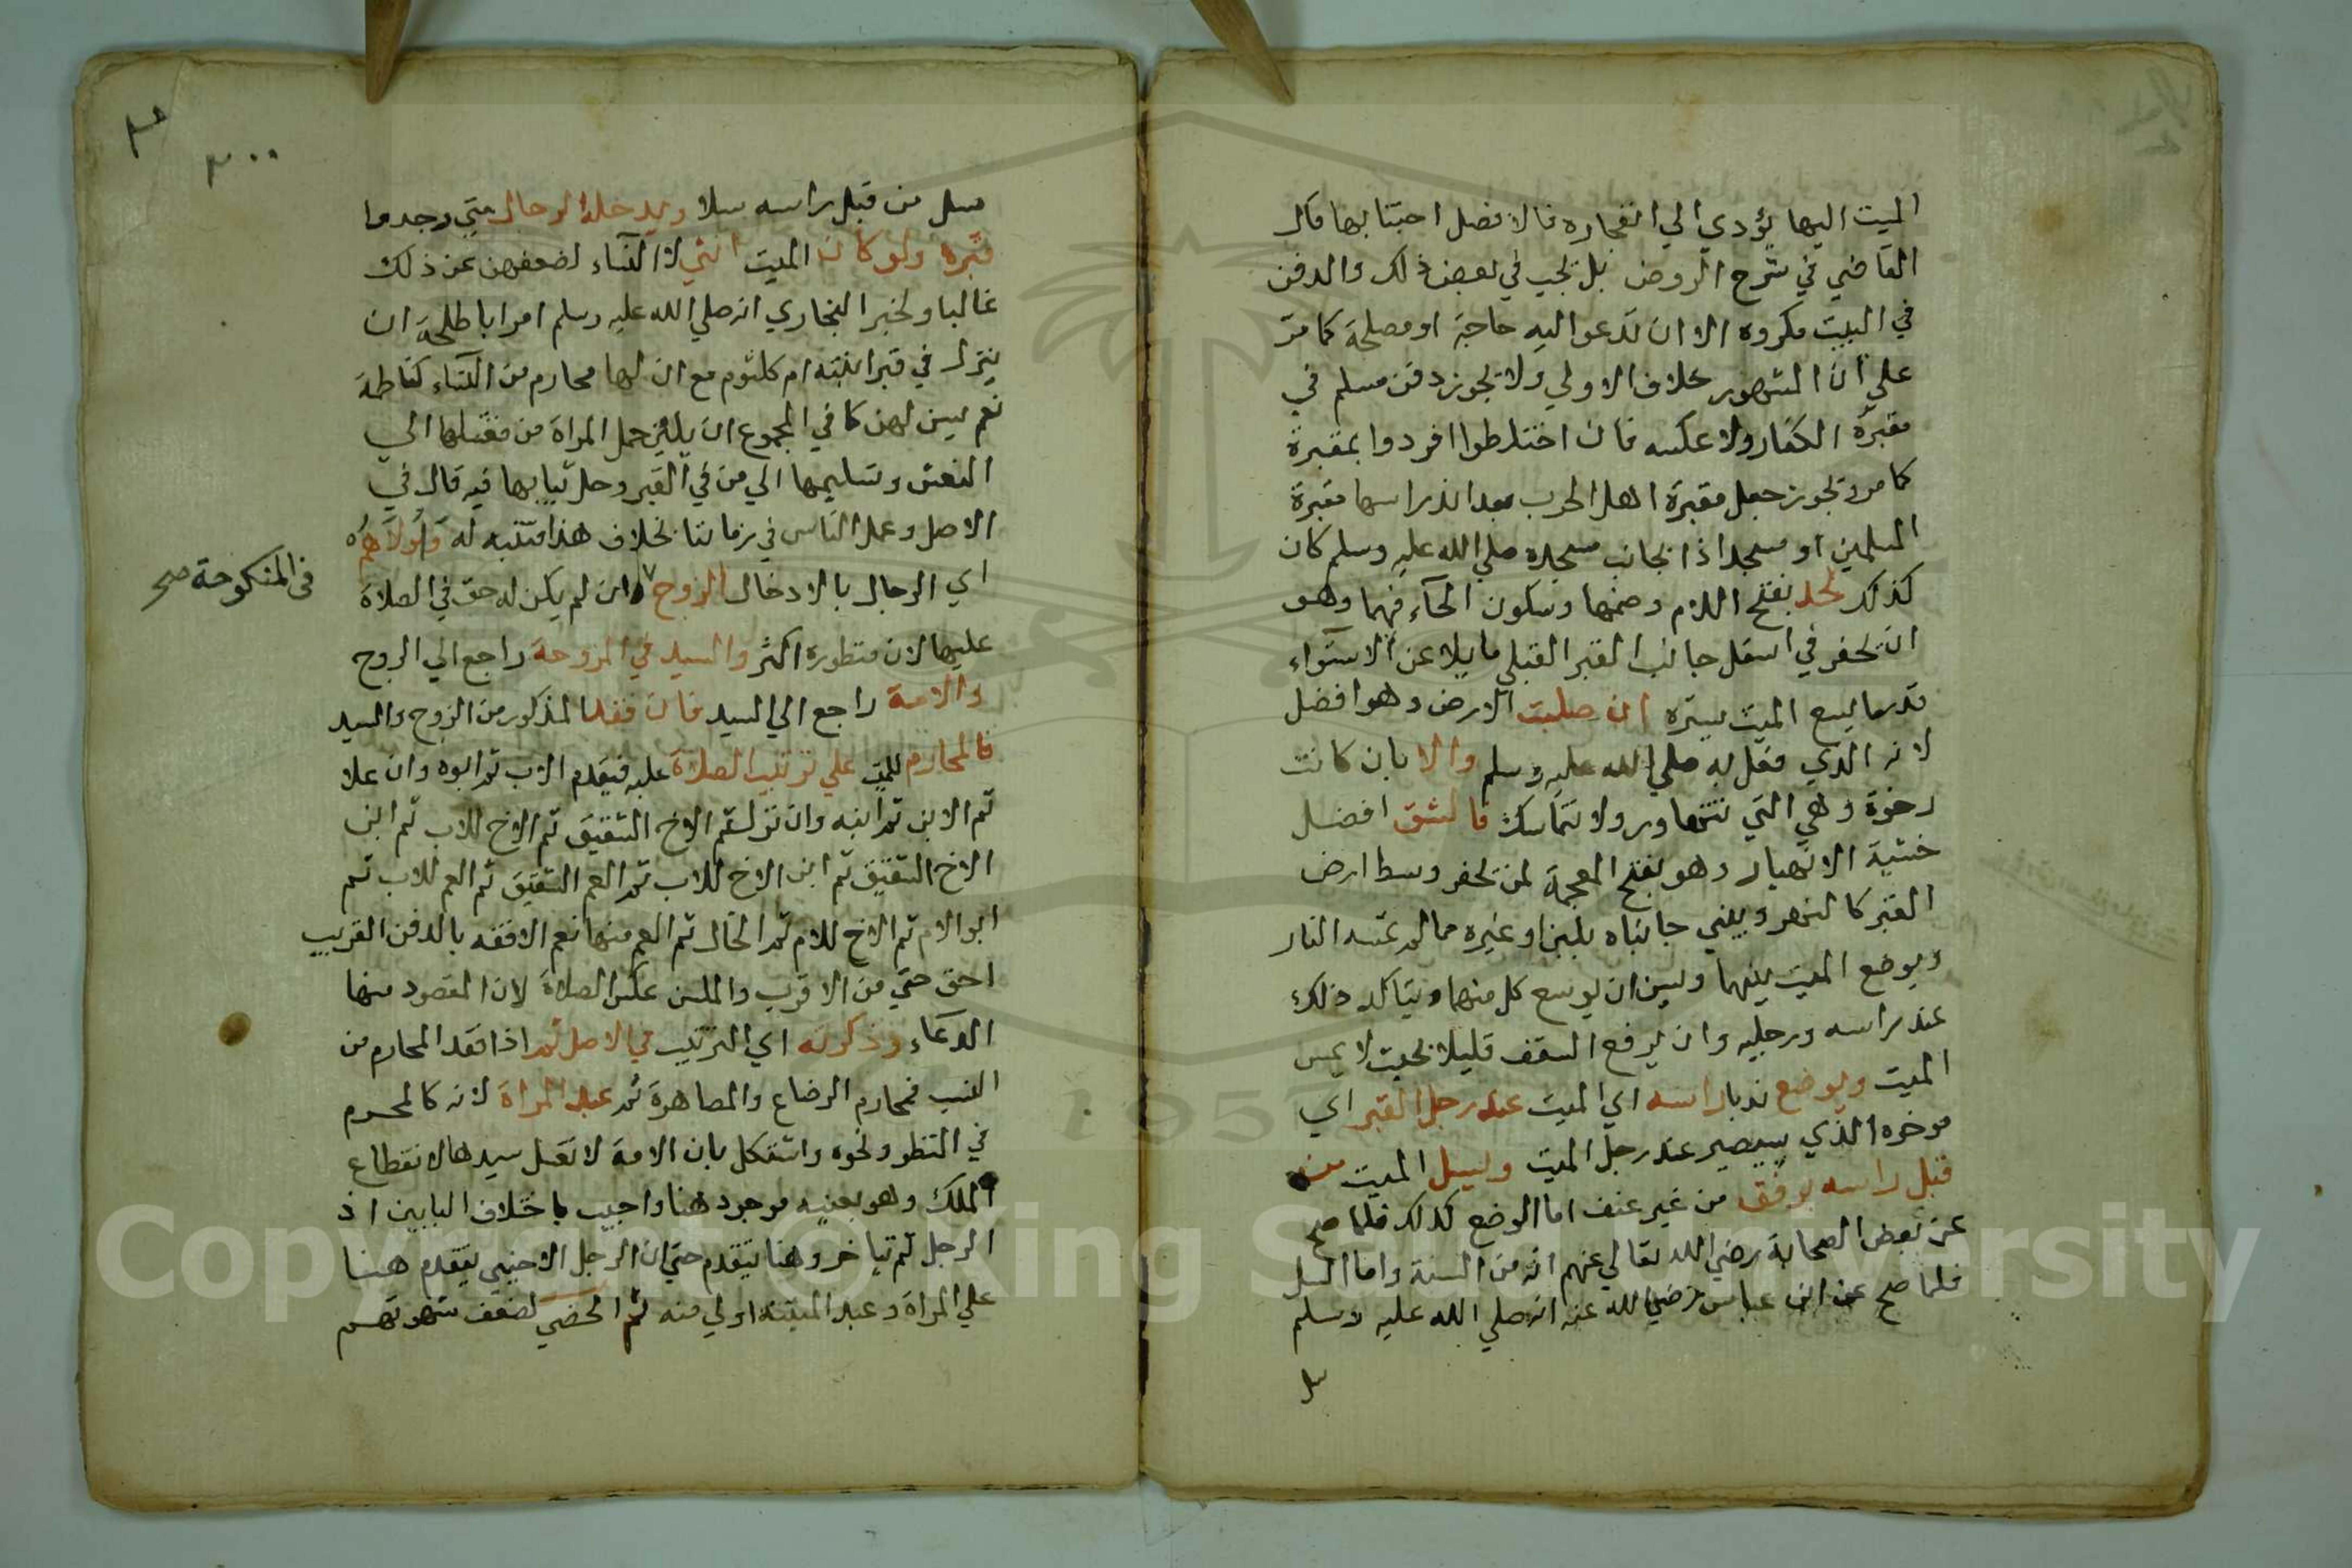 الميت اليها يؤدي الي انفجاره فالافضل اجتنابها قال
القاضي في شرح الروض بل يجب في بعض ذلك والدفن
في البيت مكروه الا ان تدعوا اليه حاجة او مصلحة كما مر
علي ان المشهور خلاف الاولي ولا يجوز دفن مسلم في
مقبرة الكفار ولا عكسه فان اختلطوا افردوا بمقبرة
كما مر ويجوز جعل مقبرة اهل الحرب بعد اندراسها مقبرة
المسلمين او مسجدا اذا بجانب مسجده صلي الله عليه وسلم كان
كذلك لحد بفتح اللام وضمها وسكون الحاء فيهما وهو
ان يحفر في اسفل جانب القبر القبلي مايلا عن الاستواء
قدر ما يسع الميت يستره ان صلبت الارض وهو افضل
لانه الذي فعل به صلي الله عليه وسلم والا بان كانت
رخوة وهي التي تنهار ولا تتماسك فالشق افضل
خشية الانهيار وهو بفتح المعجمة لمن يحفر وسط ارض
القبر كالنهر ويبني جانباه بلبن او غيره مما لم تمسه النار
ويوضع الميت بينهما ويسن ان يوسع كل منهما ويتاكد ذلك
عند راسه ورجليه وان يرفع السقف قليلا بحيث لا يمس
الميت ويوضع ندبا راسه اي الميت عند رجل القبر اي
موخره الذي سيصير عند رجل الميت ويسل الميت من
قبل راسه برفق من غير عنف اما الوضع كذلك فلما صح
عن بعض الصحابة رضي الله تعالي عنهم انه من السنة واما السل
فلما صح عن ابن عباس رضي الله عنه انه صلي الله عليه وسلم
سل
٣
٣٠٠
سل من قبل راسه سلا ويدخله الرجال متي وجدوا
قبره ولو كان الميت انثي لا النساء لضعفهن عن ذلك
غالبا ولخبر البخاري انه صلي الله عليه وسلم امر ابا طلحة ان
ينزل في قبر ابنته ام كلثوم مع ان لها محارم من النساء كفاطمة
نعم يسن لهن كما في المجموع ان يلين حمل المراة من مغتسلها الي
النعش وتسليمها الي من في القبر وحل ثيابها فيه قال في
الاصل وعمل الناس في زماننا بخلاف هذا فتنبه له واولاهم
اي الرجال بالادخال الزوج وان لم يكن له حق في الصلاة
في المنكوحة صح
عليها لان منظوره اكثر والسيد في المزوجة راجع الي الزوج
والامة راجع الي السيد فان فقد المذكور من الزوج والسيد
فالمحارم للميت علي ترتيب الصلاة عليه فيقدم الاب ثم ابوه وان علا
ثم الابن ثم ابنه وان نزل ثم الاخ الشقيق ثم الاخ للاب ثم ابن
الاخ الشقيق ثم ابن الاخ للاب ثم العم الشقيق ثم العم للاب ثم
ابو الام ثم الاخ للام ثم الخال ثم العم منها نعم الافقه بالدفن القريب
احق حتي من الاقرب والمسن عكس الصلاة لان المقصود منها
الدعاء وذكرته اي الترتيب في الاصل ثم اذا فقد المحارم من
النسب فمحارم الرضاع والمصاهرة ثم عبد المراة لانه كالمحرم
في النظر ونحوه واستشكل بان الامة لا تغسل سيدها لانقطاع
الملك وهو بعينه موجود هنا واجيب باختلاف البابين اذ
الرجل ثم يتاخر وهنا يتقدم حتي ان الرجل الاجنبي يتقدم هنا
علي المراة وعبد الميتة اولي منه ثم الخصي لضعف شهوتهم
Copyright © King Saud University
1957